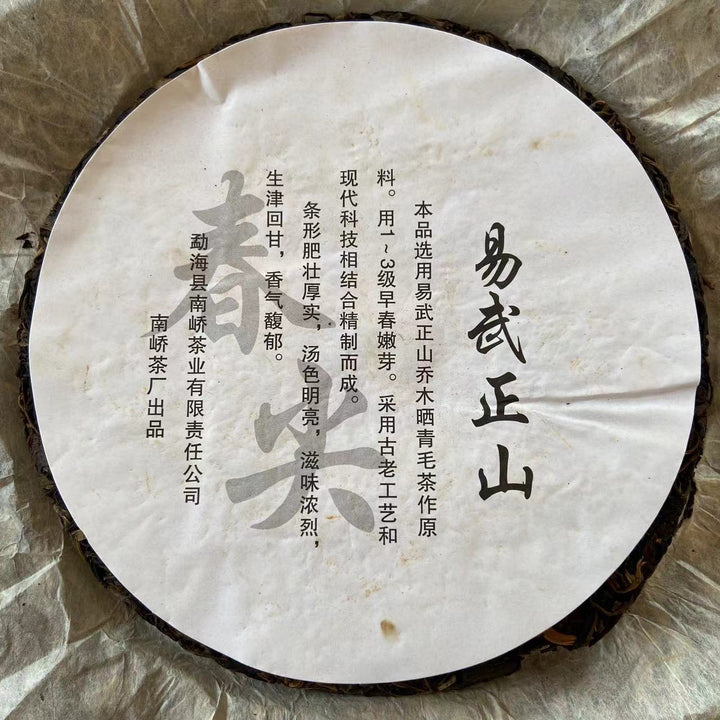 易武正山
本品选用易武正山乔木晒青毛茶作原
料。用1~3级早春嫩芽。采用古老工艺和
现代科技相结合精制而成。
条形肥壮厚实，汤色明亮，滋味浓烈，
生津回甘，香气馥郁。
春尖
勐海县南峤茶业有限责任公司
南峤茶厂出品